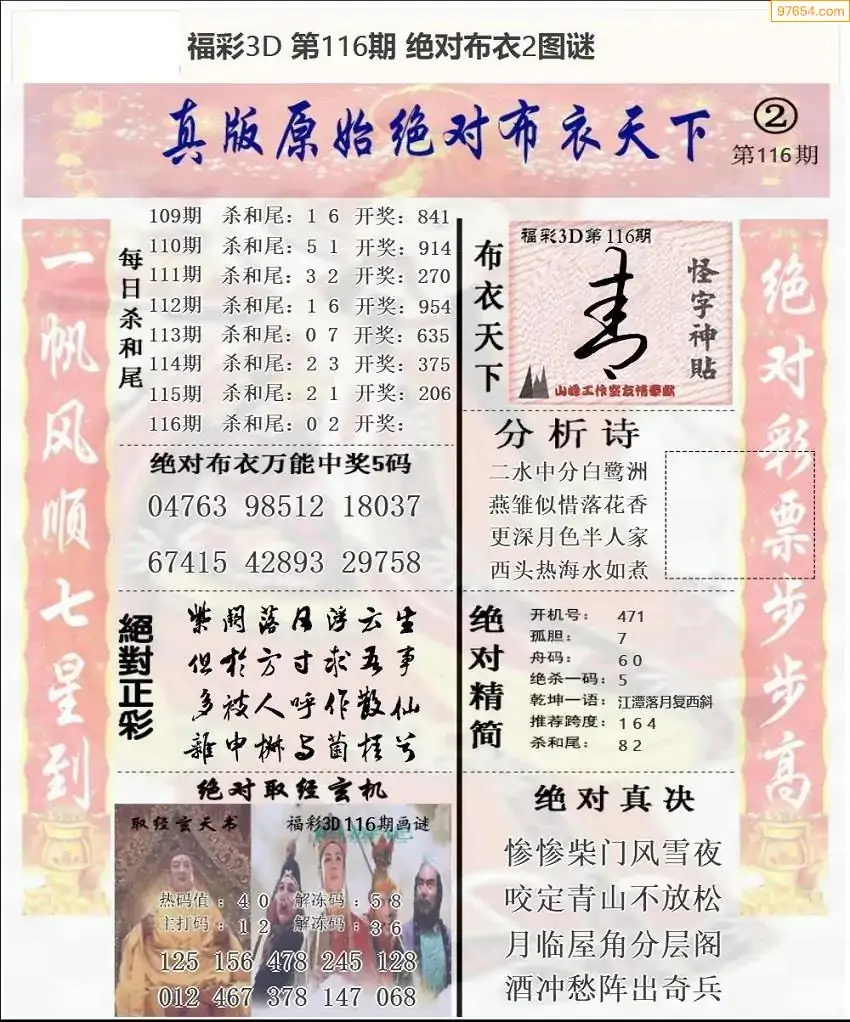 97654.com
福彩3D 第116期 绝对布衣2图谜
真版原始绝对布衣天下
②
第116期
一帆风顺七星到
每日杀和尾
109期 杀和尾：1 6 开奖：841
110期 杀和尾：5 1 开奖：914
111期 杀和尾：3 2 开奖：270
112期 杀和尾：1 6 开奖：954
113期 杀和尾：0 7 开奖：635
114期 杀和尾：2 3 开奖：375
115期 杀和尾：2 1 开奖：206
116期 杀和尾：0 2 开奖：
绝对布衣万能中奖5码
04763 98512 18037
67415 42893 29758
絕對正彩
紫阁落日浮云生
但於方寸求吾事
多被人呼作散仙
雜申椒与菌桂兮
绝对取经玄机
取经玄天书
福彩3D116期画谜
热码值：4 0 解冻码：5 8
主打码：1 2 解冻码：3 6
125 156 478 245 128
012 467 378 147 068
布衣天下
福彩3D第116期
怪字神贴
山峰工作室友情奉献
分析诗
二水中分白鹭洲
燕雏似惜落花香
更深月色半人家
西头热海水如煮
绝对精简
开机号： 471
孤胆： 7
舟码： 6 0
绝杀一码：5
乾坤一语：江潭落月复西斜
推荐跨度：1 6 4
杀和尾： 8 2
绝对真决
惨惨柴门风雪夜
咬定青山不放松
月临屋角分层阁
酒冲愁阵出奇兵
绝对彩票步步高